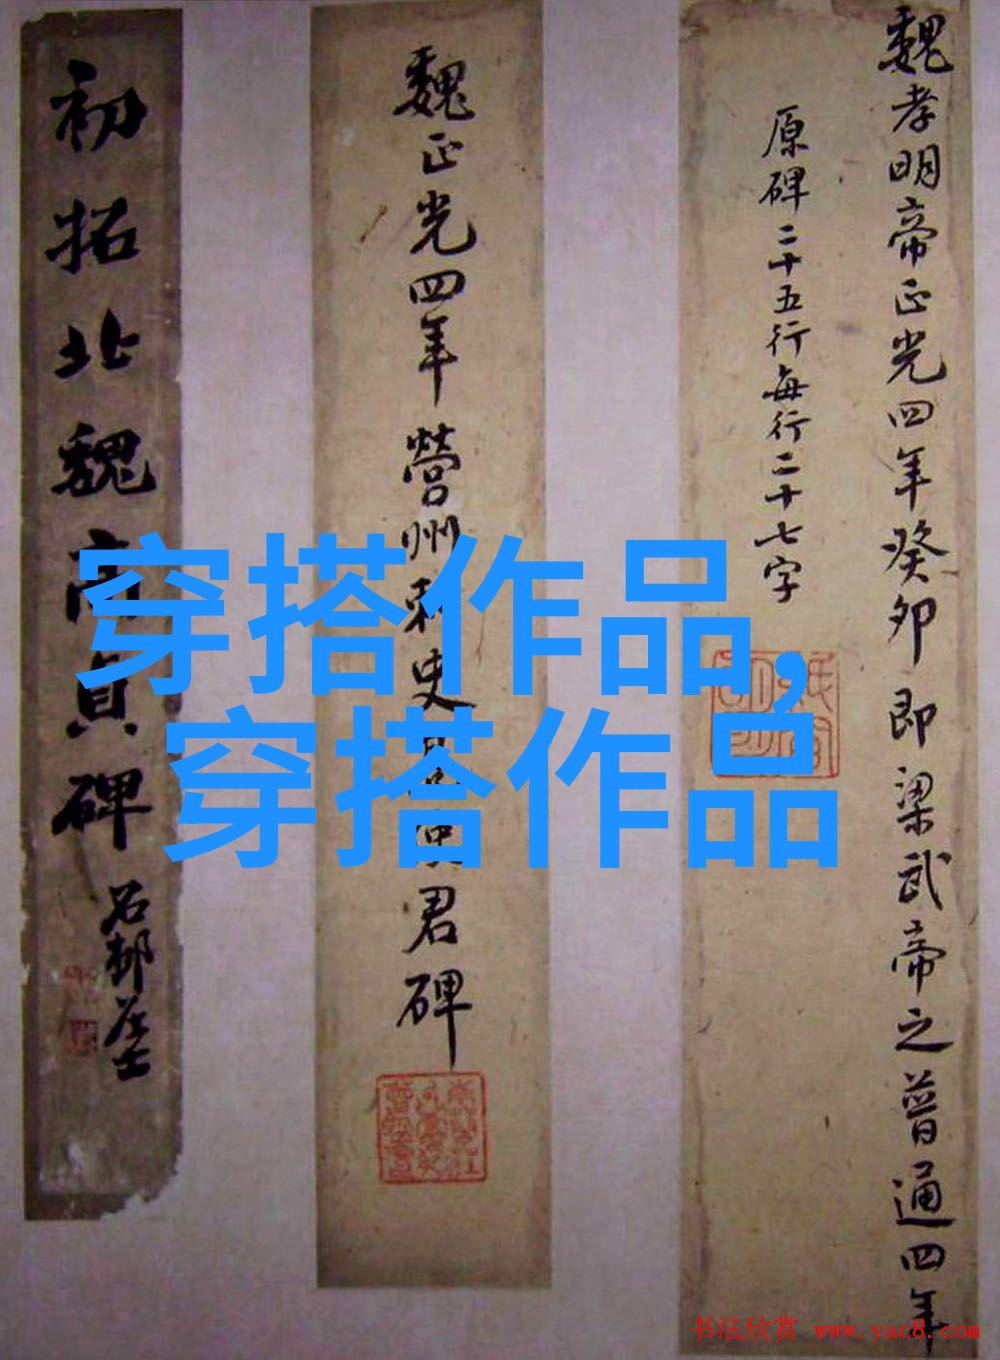 魏孝明帝正光四年癸卯即梁武帝之普通四年
原碑二十五行每行二十七字
魏正光四年營州刺史高使君碑
初拓北魏高貞碑
石邨居士
穿搭作品,
穿搭作品
书法欣赏 www.yac8.com